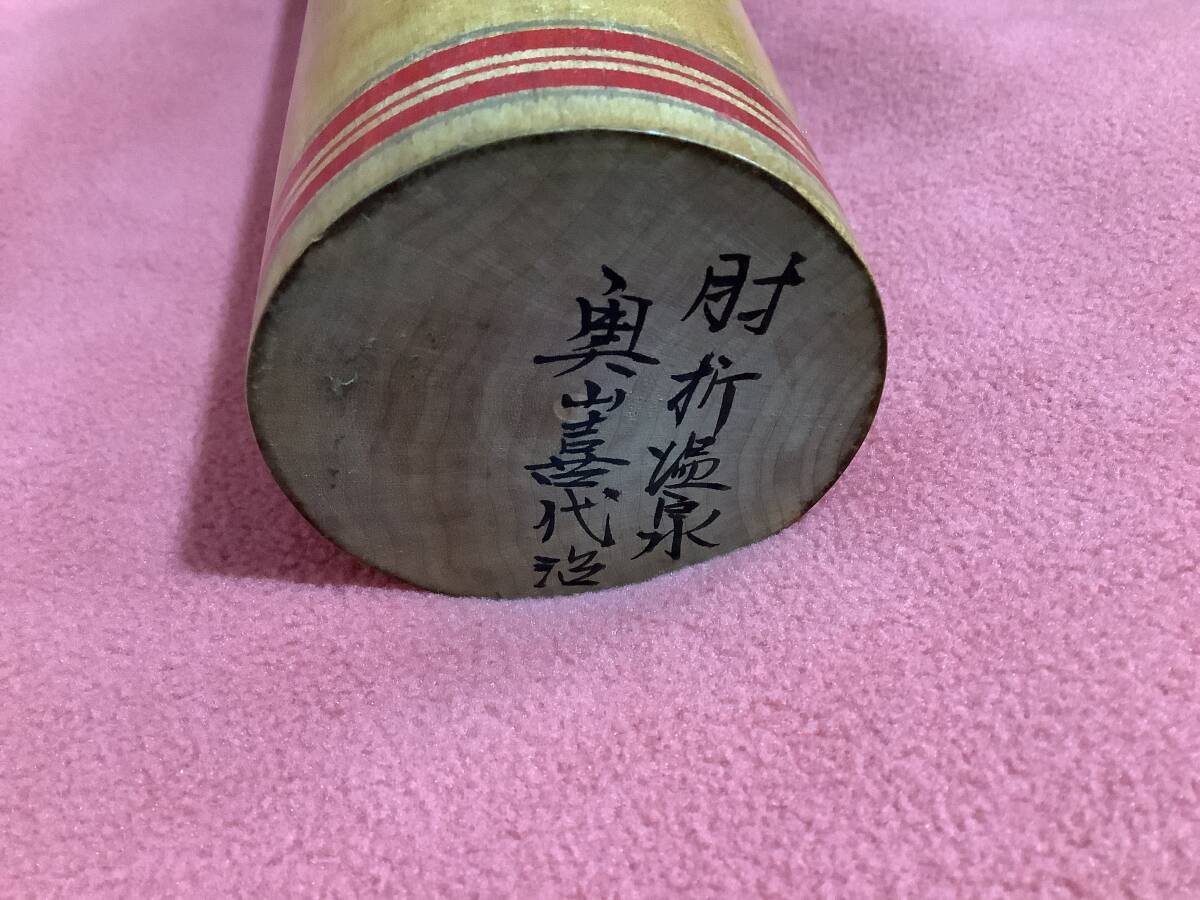 肘折温泉
奥山喜代治